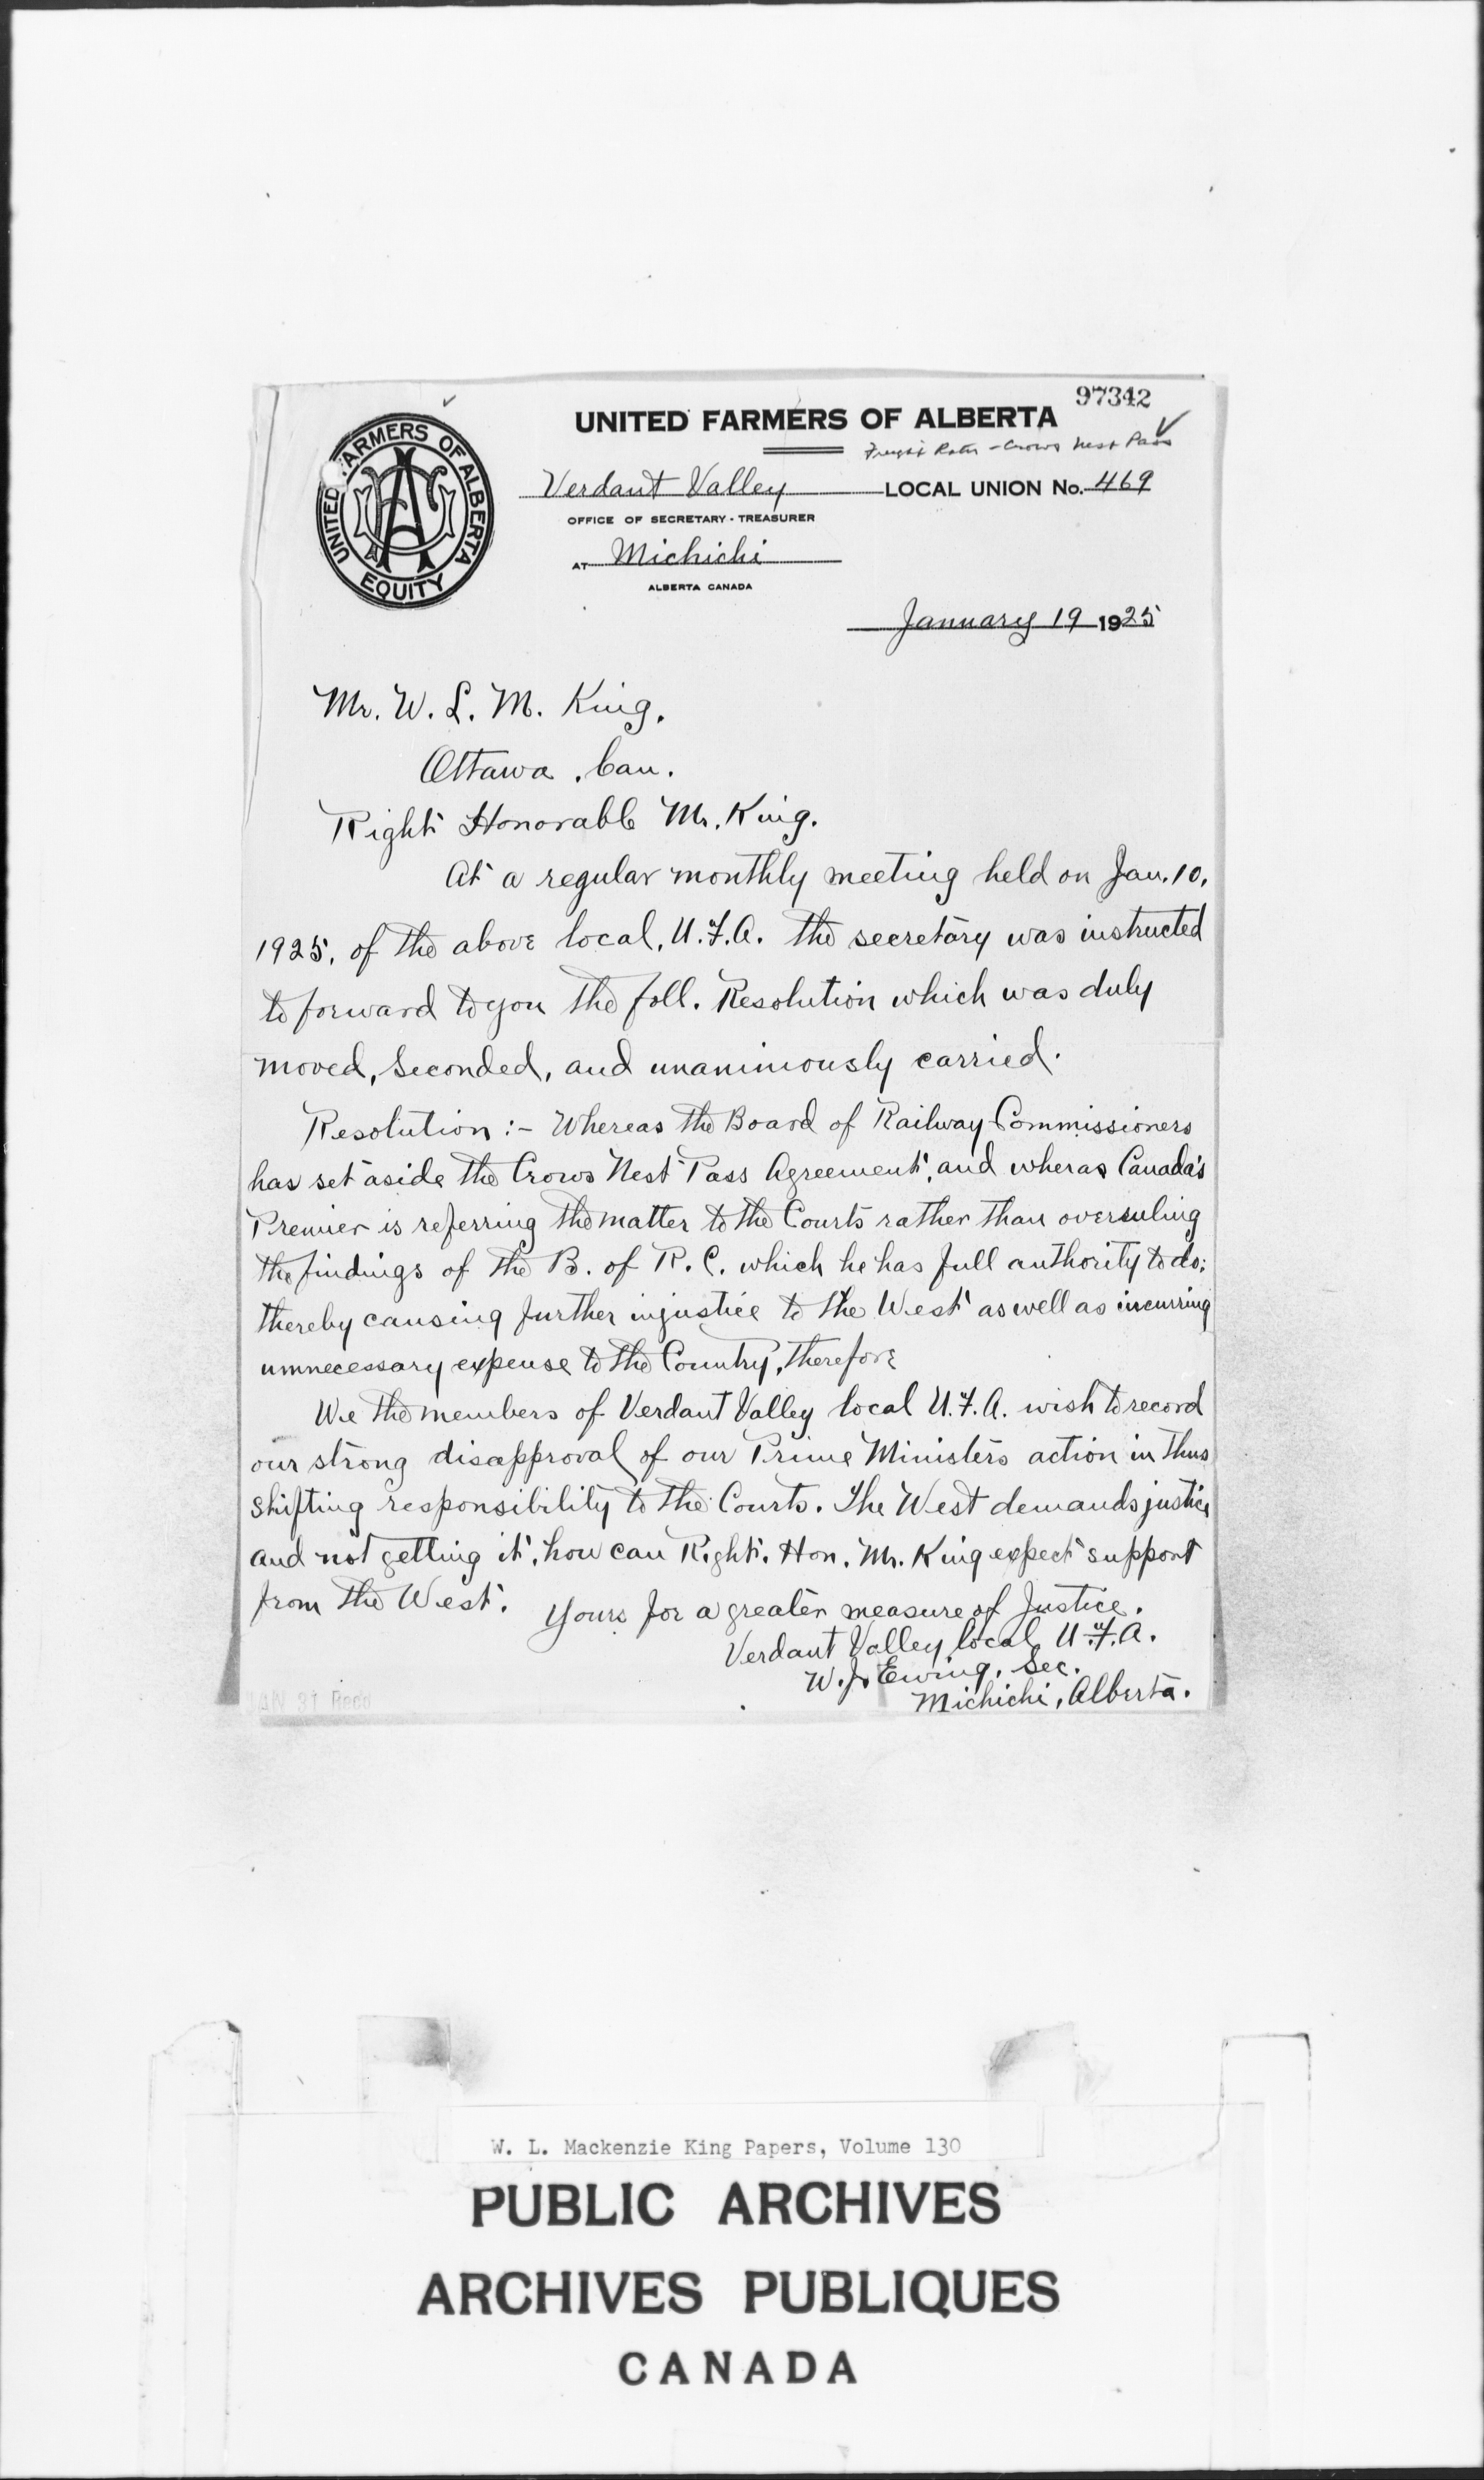 97342
UNITED FARMERS OF ALBERTA
Freight Rates - Crows Nest Pass
UNITED FARMERS OF ALBERTA
EQUITY
Verdant Valley LOCAL UNION No. 469
OFFICE OF SECRETARY - TREASURER
AT Michichi
ALBERTA CANADA
January 19 1925
Mr. W. L. M. King.
Ottawa. Can.
Right Honorable Mr. King.
At a regular monthly meeting held on Jan. 10,
1925, of the above local, U.F.A. the secretary was instructed
to forward to you the foll. Resolution which was duly
moved, seconded, and unanimously carried.
Resolution :- Whereas the Board of Railway Commissioners
has set aside the Crows Nest Pass Agreement, and wheras Canada's
Premier is referring the matter to the Courts rather than overruling
the findings of the B. of R. C. which he has full authority to do;
thereby causing further injustice to the West as well as incurring
unnecessary expense to the Country, therefore
We the members of Verdant Valley local U.F.A. wish to record
our strong disapproval of our Prime Ministers action in thus
shifting responsibility to the Courts. The West demands justice
and not getting it, how can Right. Hon. Mr. King expect support
from the West. Yours for a greater measure of Justice.
Verdant Valley local U.F.A.
W. J. Ewing. Sec.
Michichi, Alberta.
JAN 31 Recd
W. L. Mackenzie King Papers, Volume 130
PUBLIC ARCHIVES
ARCHIVES PUBLIQUES
CANADA